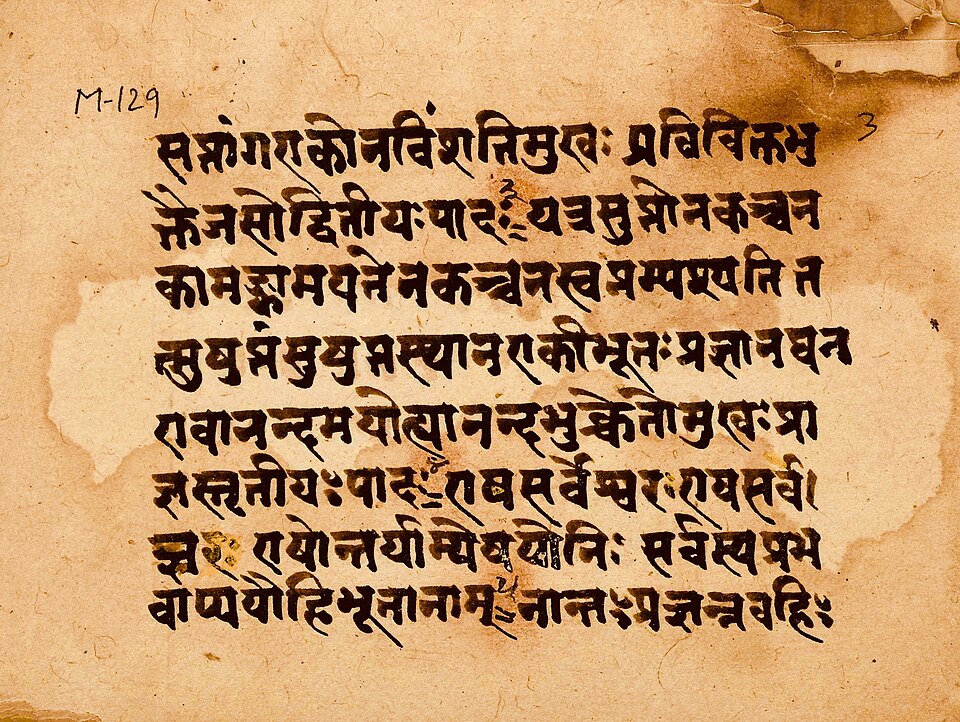 M-129
3
सप्तांगएकोनविंशतिमुखः प्रविविक्तभु
क्तैजसोद्वितीयःपादः ३ यत्रसुप्तोनकञ्चन
कामङ्कामयतेनकञ्चनस्वप्नम्पश्यतित
त्सुषुप्तंसुषुप्तस्थानएकीभूतःप्रज्ञानघन
एवानन्दमयोह्यानन्दभुक्चेतोमुखःप्रा
ज्ञस्तृतीयःपादः ४ एषसर्वेश्वरःएषसर्व।
ज्ञः एषोन्तर्याम्येषयोनिः सर्वस्यप्रभ
वाप्ययौहिभूतानाम् ५ नान्तःप्रज्ञन्नवहिः